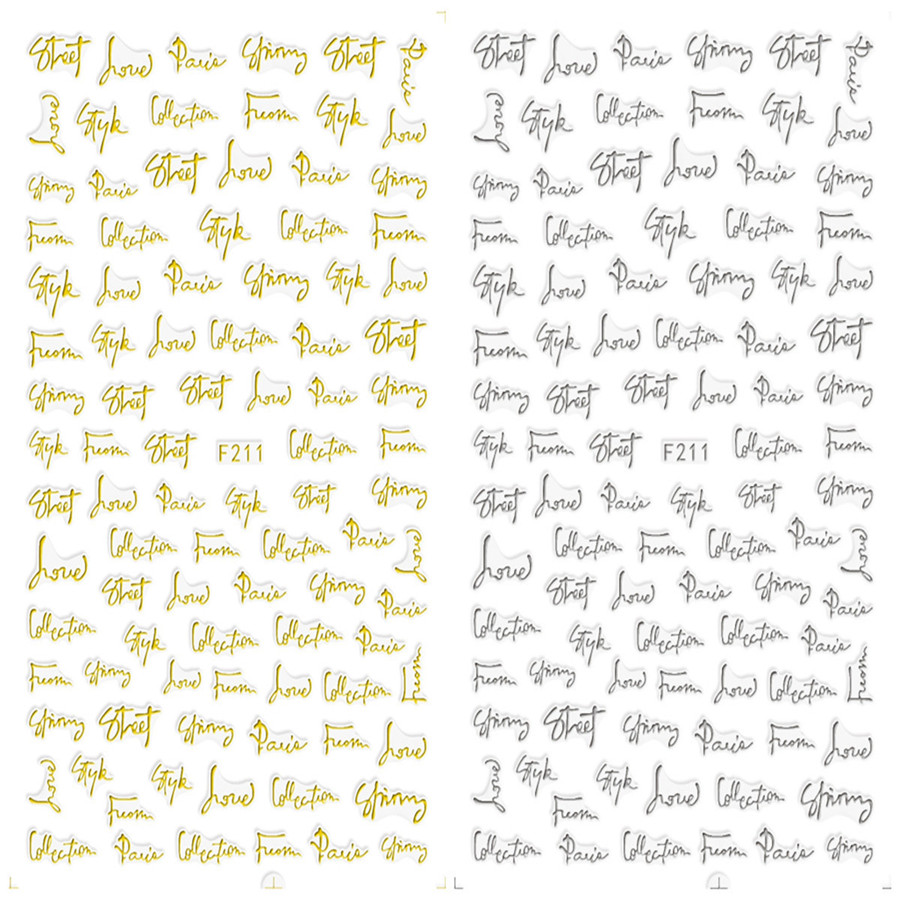 Street Love Paris Spring Street Paris
Love Style Collection From Style Love
Spring Paris Street Love Paris Spring
From Collection Style Collection From
Style Love Paris Spring Style Love
From Style Love Collection Paris Street
Spring Street Street Love Paris Spring
Style From Street F211 Collection From
Street Love Paris Style Street Spring
Love Collection From Collection Paris Love
Street Love Paris Spring Paris
Collection Style Collection Collection Paris
From Spring Love From Love Collection From
Spring Street Spring Paris From Love
Love Style From Style Love Collection Spring
Collection Paris Collection From Paris Spring
Street Love Paris Spring Street Paris
Love Style Collection From Style Love
Spring Paris Street Love Paris Spring
From Collection Style Collection From
Style Love Paris Spring Style Love
From Style Love Collection Paris Street
Spring Street Street Love Paris Spring
Style From Street F211 Collection From
Street Love Paris Style Street Spring
Love Collection From Collection Paris Love
Street Love Paris Spring Paris
Collection Style Collection Collection Paris
From Spring Love From Love Collection From
Spring Street Spring Paris From Love
Love Style From Style Love Collection Spring
Collection Paris Collection From Paris Spring